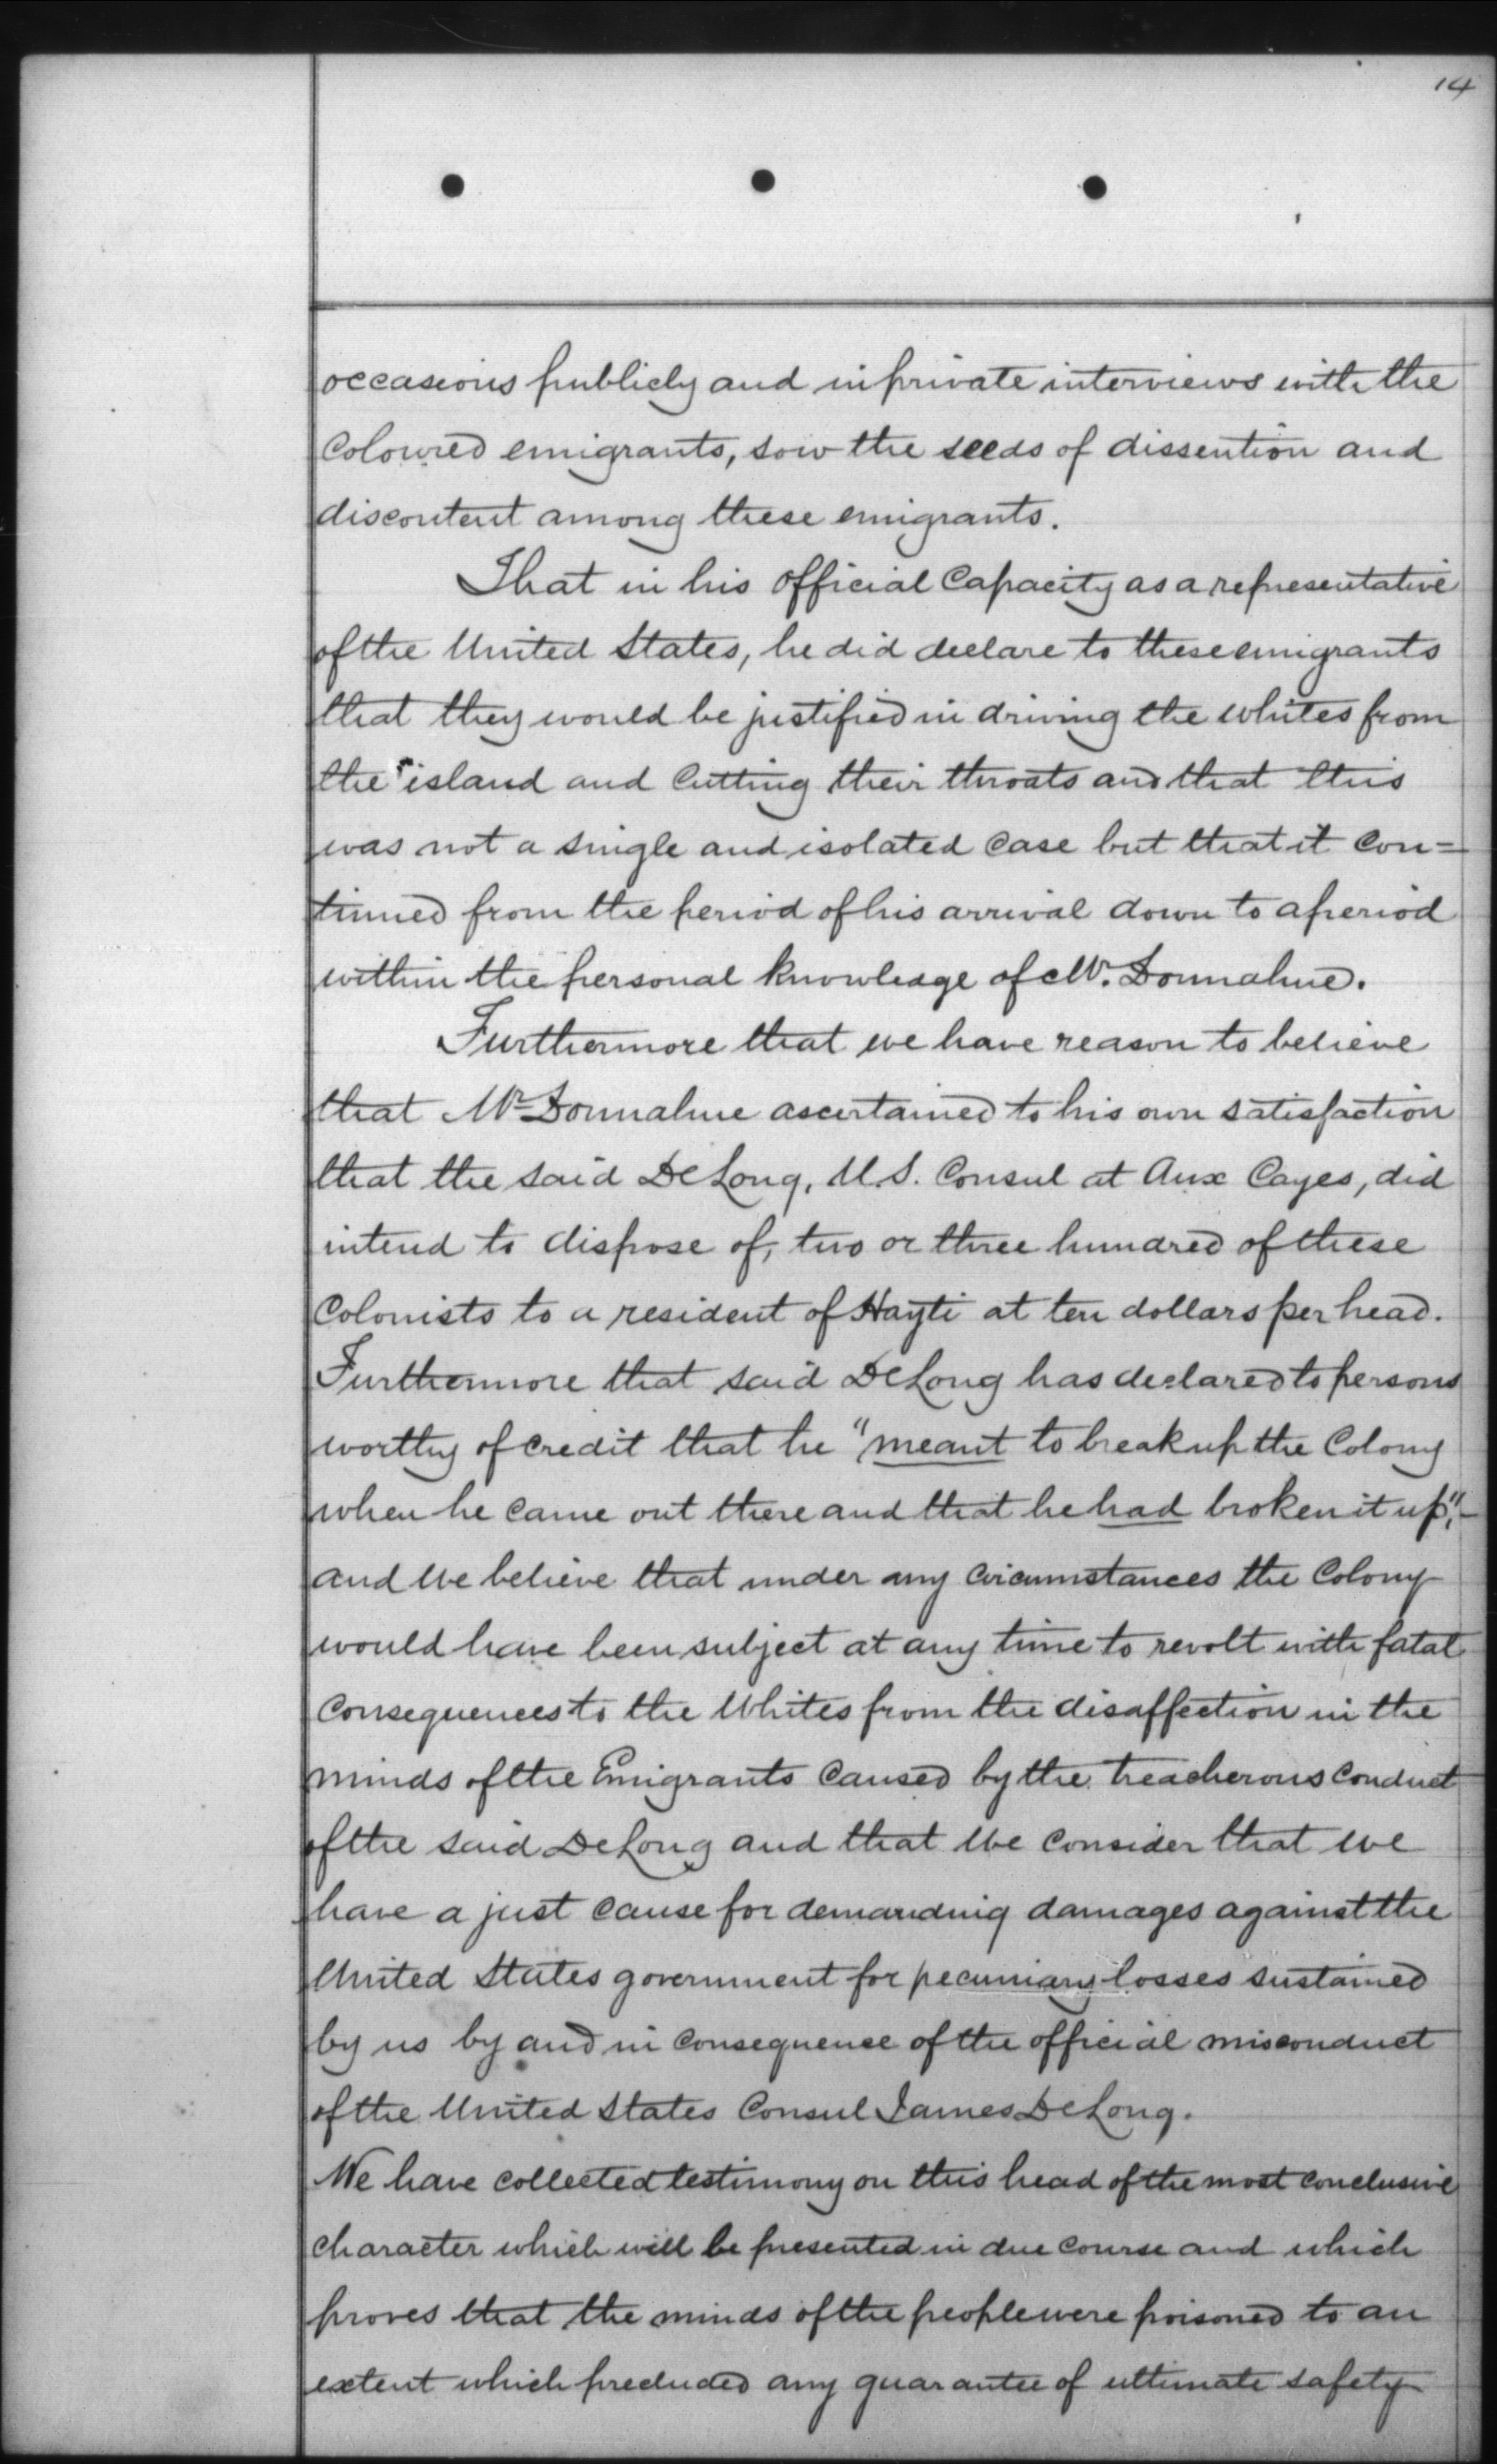 14
occasions publicly and in private interviews with the
Coloured emigrants, sow the seeds of dissention and
discontent among these emigrants.
That in his official Capacity as a representative
of the United States, he did declare to these emigrants
that they would be justified in driving the whites from
the island and Cutting their throats and that this
was not a single and isolated case but that it Con=
tinued from the period of his arrival down to a period
within the personal knowledge of Mr. Donnahue.
Furthermore that we have reason to believe
that Mr Donnahue ascertained to his own satisfaction
that the said DeLong, U.S. Consul at Aux Cayes, did
intend to dispose of, two or three hundred of these
Colonists to a resident of Hayti at ten dollars per head.
Furthermore that said DeLong has declared to persons
worthy of credit that he "meant to break up the Colony
when he came out there and that he had broken it up",-
and we believe that under any circumstances the Colony
would have been subject at any time to revolt with fatal
consequences to the Whites from the disaffection in the
minds of the Emigrants caused by the treacherous conduct
of the said DeLong and that we consider that we
have a just cause for demanding damages against the
United States government for pecuniary losses sustained
by us by and in consequence of the official misconduct
of the United States Consul James DeLong.
We have collected testimony on this head of the most conclusive
character which will be presented in due course and which
proves that the minds of the people were poisoned to an
extent which precluded any guarantee of ultimate safety